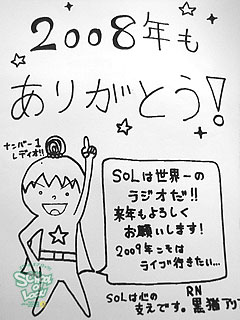 2008年も
ありがとう!
ナンバー1
レディオ!!
SOLは世界一の
ラジオだ!!
来年もよろしく
お願いします!
2009年こそは
ライブ行きたい…
SOLは心の
支えです。
RN
黒猫アリ